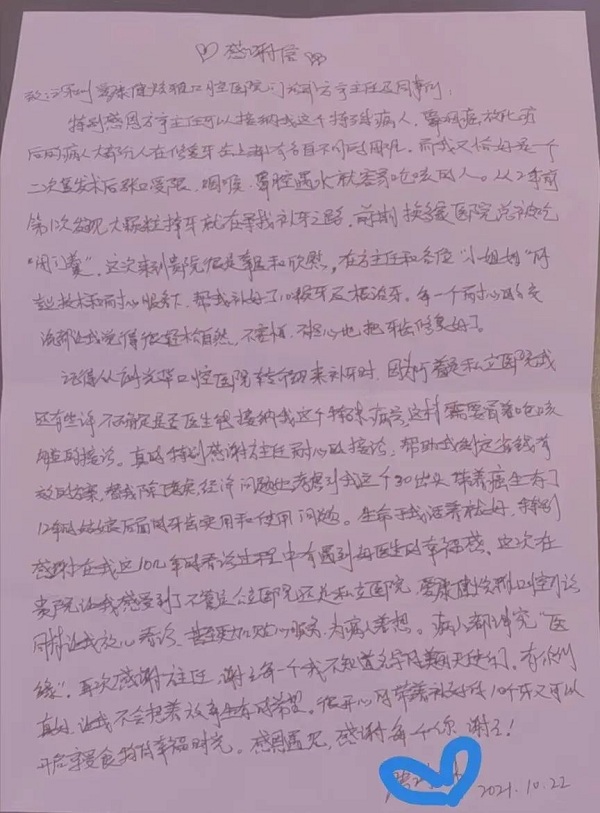 感谢信
致：深圳爱康健 口腔医院门诊部方主任及同事们：
特别感恩方主任可以接纳我这个特殊病人，鼻咽癌放化疗
后的病人大部分人在修复牙齿上都有各自不同的困扰。而我又恰好是一个
二次复发术后张口受限，咽喉、鼻腔遇水就容易呛咳的人。从2年前
第1次发现大颗粒掉牙就在寻找补牙之路，前期换多家医院总被吃
“闭门羹”。这次来到贵院很是幸运和欣慰，在方主任和各位“小姐姐”的
技术和耐心服务下，帮我补好了10颗牙及根治牙。每一个耐心的交
流都让我觉得很轻松自然，不害怕、不担心也把牙齿修复好了。
记得从 口腔医院转 来补牙时，因为 是私立医院我
还有些许不确定是否医生能接纳我这个特殊病号，这种需要冒着呛咳
的接诊。真的特别感谢方主任耐心的接诊，帮助我制定省钱有
效的方案，替我 经济问题也考虑到我这个30出头带着癌生存了
12年的姑娘后面的牙齿实用和使用问题。生命于我活着就好，特别
感谢在我这10几年的看诊过程中有遇到好医生的幸福感，这次在
贵院让我感受到了不管是公立医院还是私立医院，爱康健 口腔门诊
同样让我放心看诊，甚至更加贴心服务，为病人着想。病人都讲究“医
缘”。再次感谢方主任，谢谢每一个我不知道名字的美丽天使们，有你们
真好，让我不会想着放弃生存的希望。很开心的带着补好的10个牙又可以
开启享受食物的幸福时光。感恩遇见，感谢每个你 谢谢！
2021.10.22